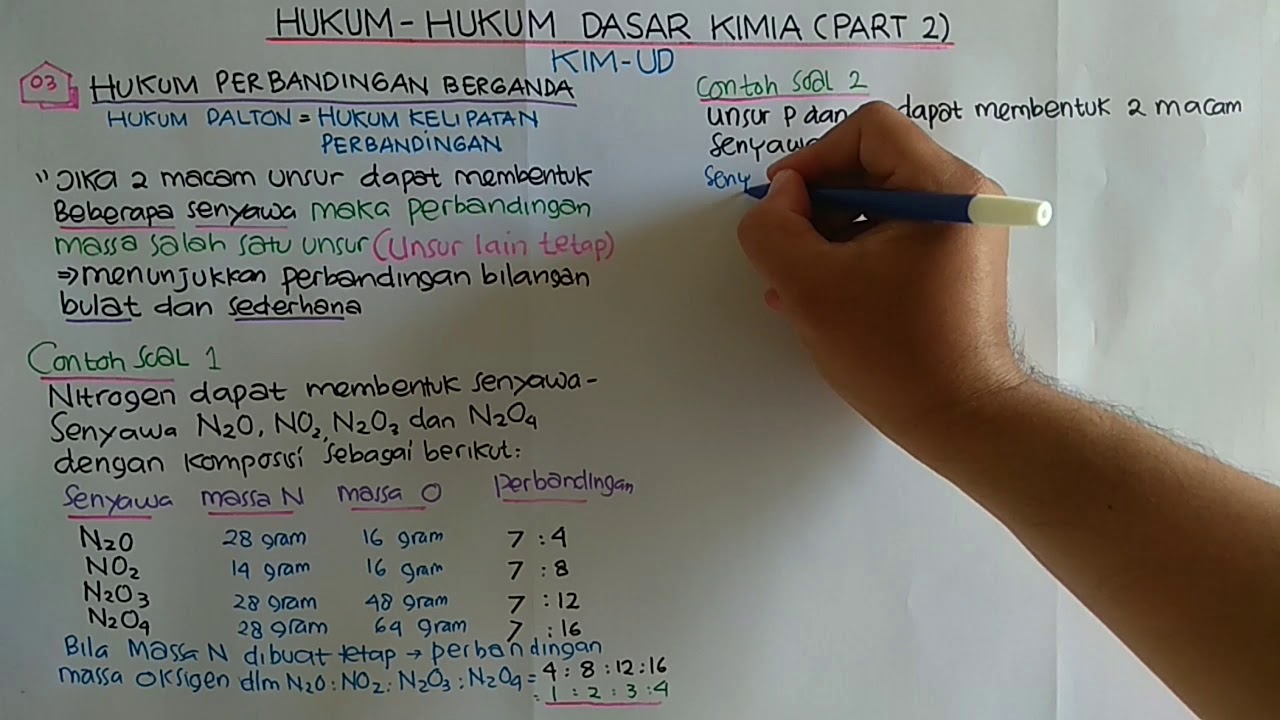 HUKUM-HUKUM DASAR KIMIA (PART 2)
KIM-UD
03 HUKUM PERBANDINGAN BERGANDA
HUKUM DALTON = HUKUM KELIPATAN
PERBANDINGAN
"JIKA 2 macam unsur dapat membentuk
Beberapa senyawa maka perbandingan
massa salah satu unsur (Unsur lain tetap)
⇒ menunjukkan perbandingan bilangan
bulat dan sederhana
Contoh Soal 1
Nitrogen dapat membentuk senyawa-
Senyawa N2O, NO2, N2O3 dan N2O4
dengan komposisi sebagai berikut:
Senyawa massa N massa O perbandingan
N2O 28 gram 16 gram 7 : 4
NO2 14 gram 16 gram 7 : 8
N2O3 28 gram 48 gram 7 : 12
N2O4 28 gram 64 gram 7 : 16
Bila Massa N dibuat tetap → perbandingan
massa oksigen dlm N2O : NO2 : N2O3 : N2O4 = 4 : 8 : 12 : 16
= 1 : 2 : 3 : 4
Contoh Soal 2
Unsur P dan dapat membentuk 2 macam
Senyawa
Seny